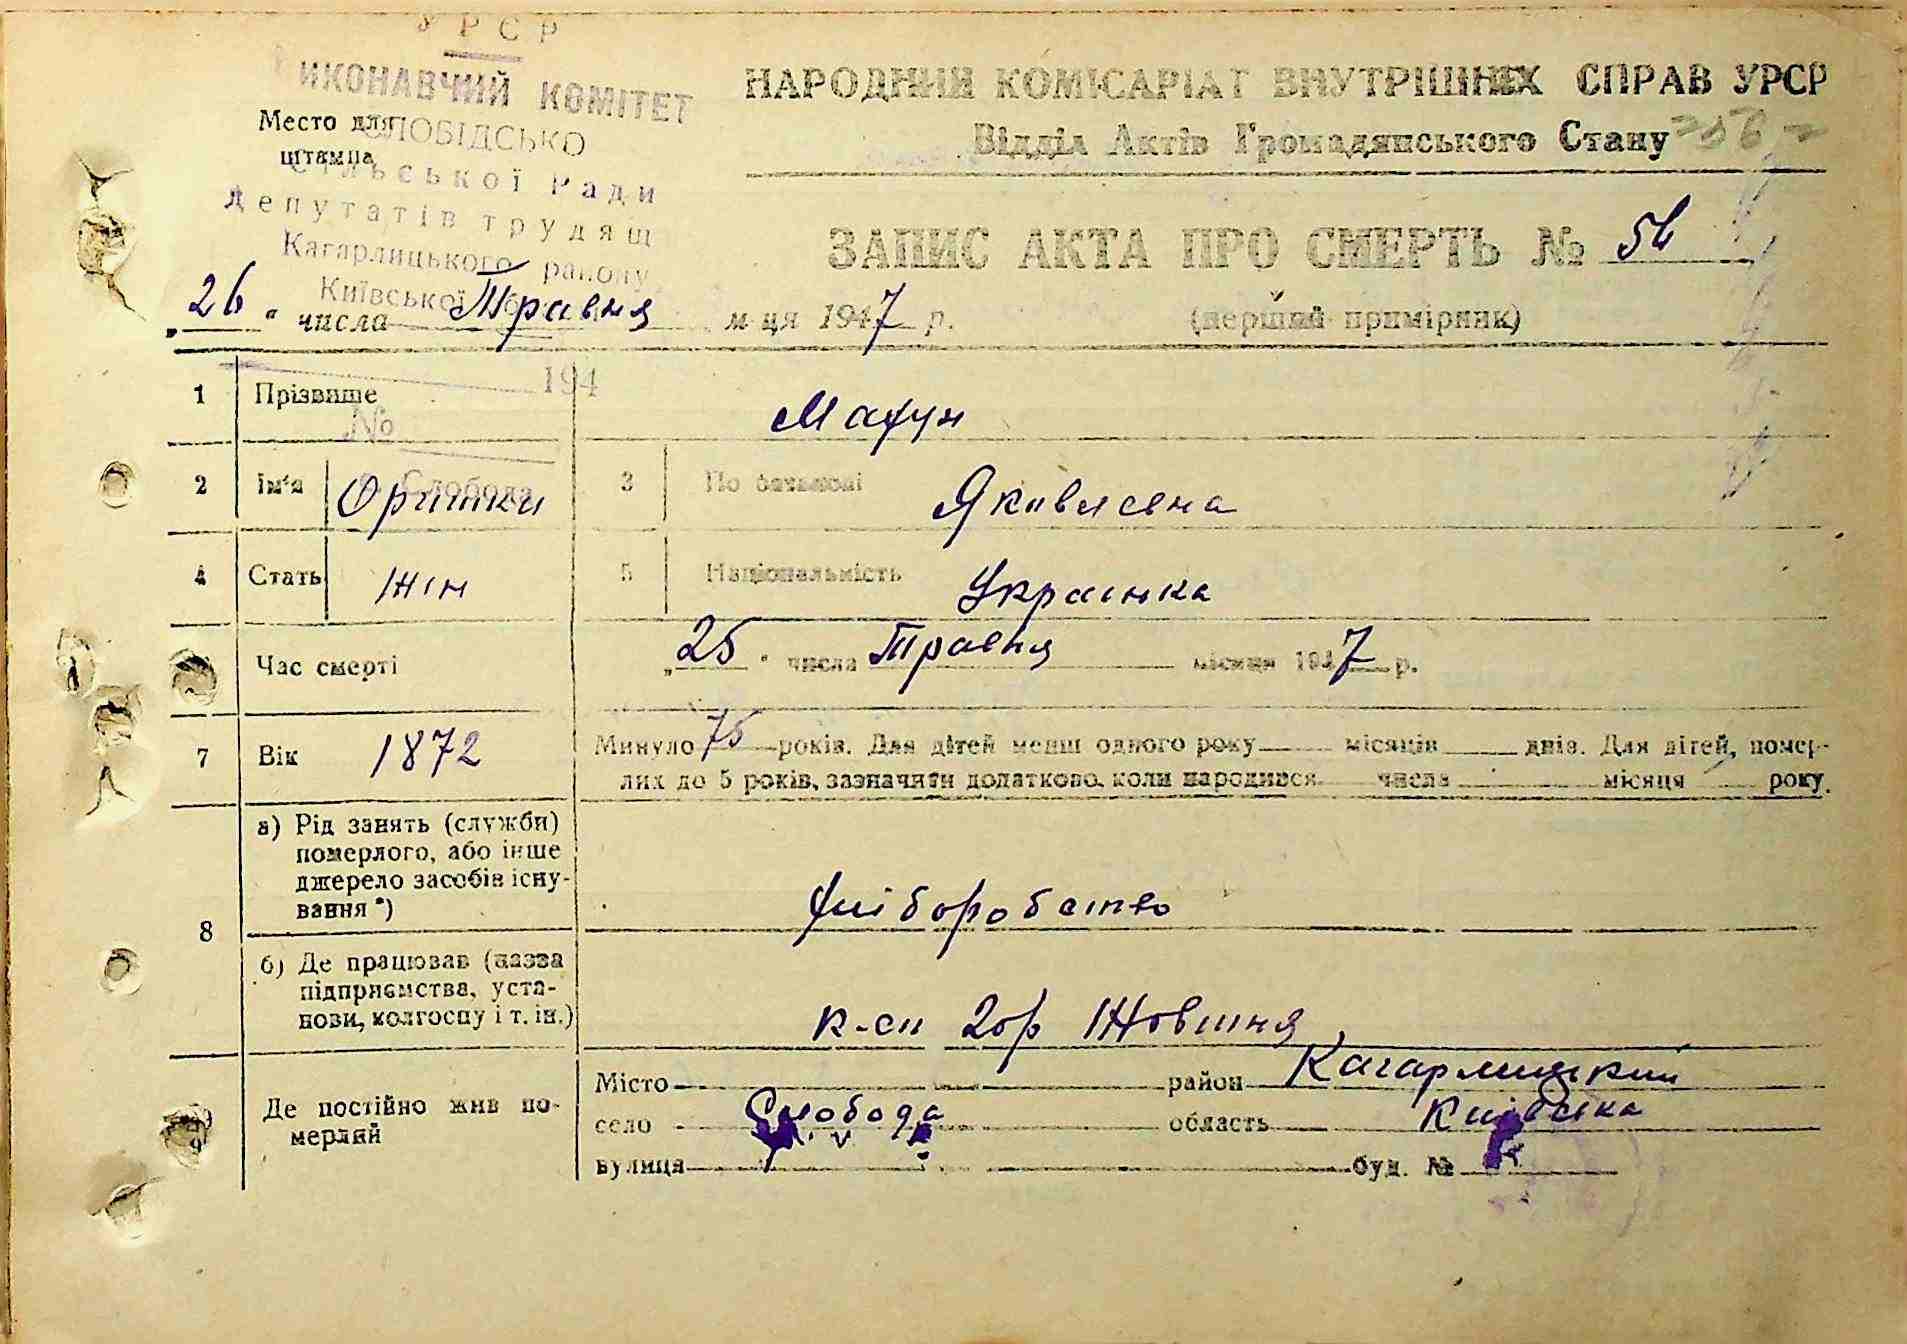 УРСР
ИКОНАВЧИЙ КОМІТЕТ
Место для
штампа
СЛОБІДСЬКО
СІЛЬСЬКОЇ Ради
Депутатів трудящ
Кагарлицького району
Київської
194
№
Слобода
НАРОДНИЙ КОМІСАРІАТ ВНУТРІШНІХ СПРАВ УРСР
Відділ Актів Громадянського Стану 56
ЗАПИС АКТА ПРО СМЕРТЬ № 56
„26“ числа Травня м-ця 1947 р. (перший примірник)
1 Прізвище Махун
2 Ім'я Оришки 3 По батькові Яковлевна
4 Стать жін 5 Національність Українка
Час смерті „25“ числа Травня місяця 1947 р.
7 Вік 1872 Минуло 75 років. Для дітей менш одного року місяців днів. Для дітей, помер-
лих до 5 років, зазначити додатково, коли народився числа місяця року.
8 а) Рід занять (служби)
померлого, або інше
джерело засобів існу-
вання *) хліборобство
б) Де працював (назва
підприємства, уста-
нови, колгоспу і т. ін.) к-сп 2ор Жовтня
9 Де постійно жив по-
мерлий
Місто район Кагарлицький
село Слобода область Київська
вулиця буд. №